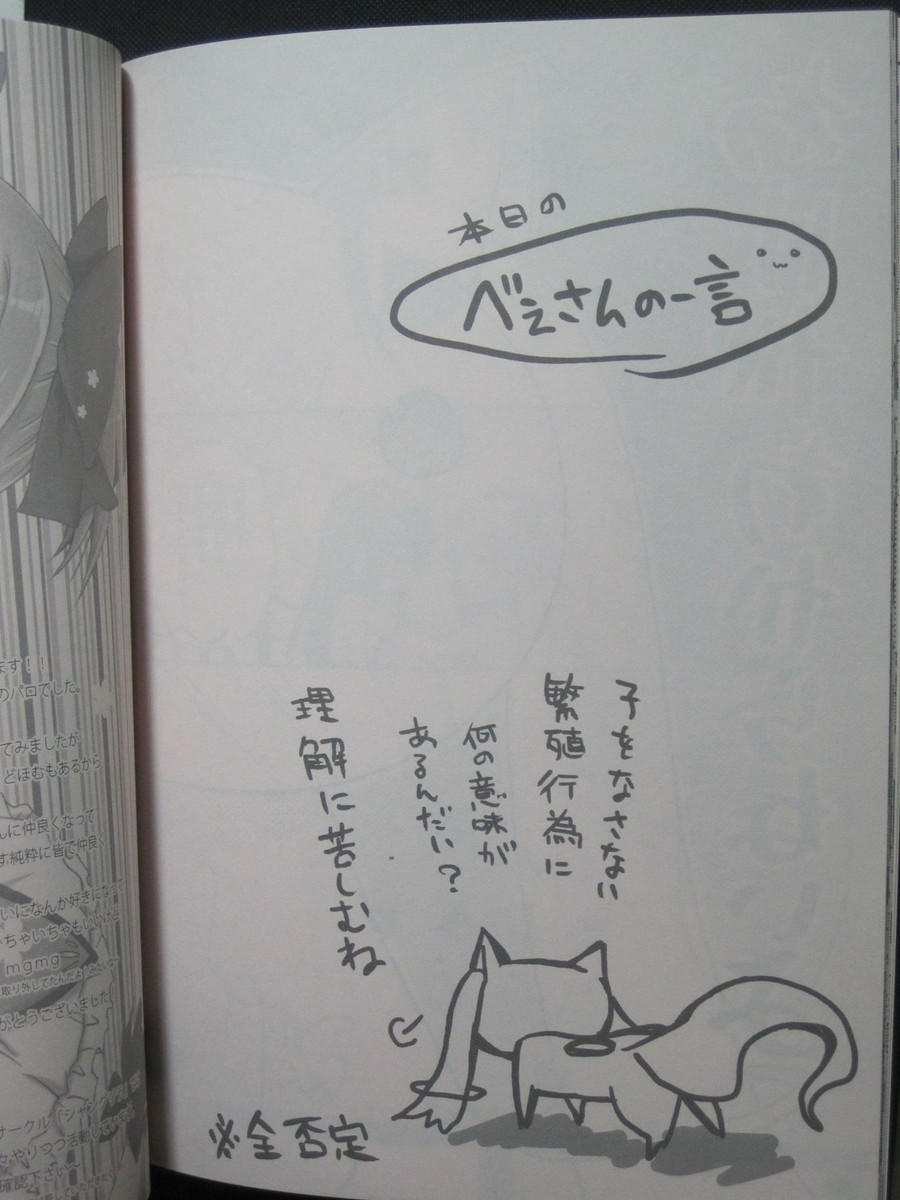 本日の
べぇさんの一言
子をなさない
繁殖行為に
何の意味が
あるんだい？
理解に苦しむね
※全否定
ます！！
のパロでした。
てみましたが
どほむもあるから
んに仲良くなって
す純粋に皆で仲良く
いになんか好きになって
ちゃいちゃもいいけど
mgmg
がとうございました
サークル「シャング
々やりつつ活動して
確認下さい～